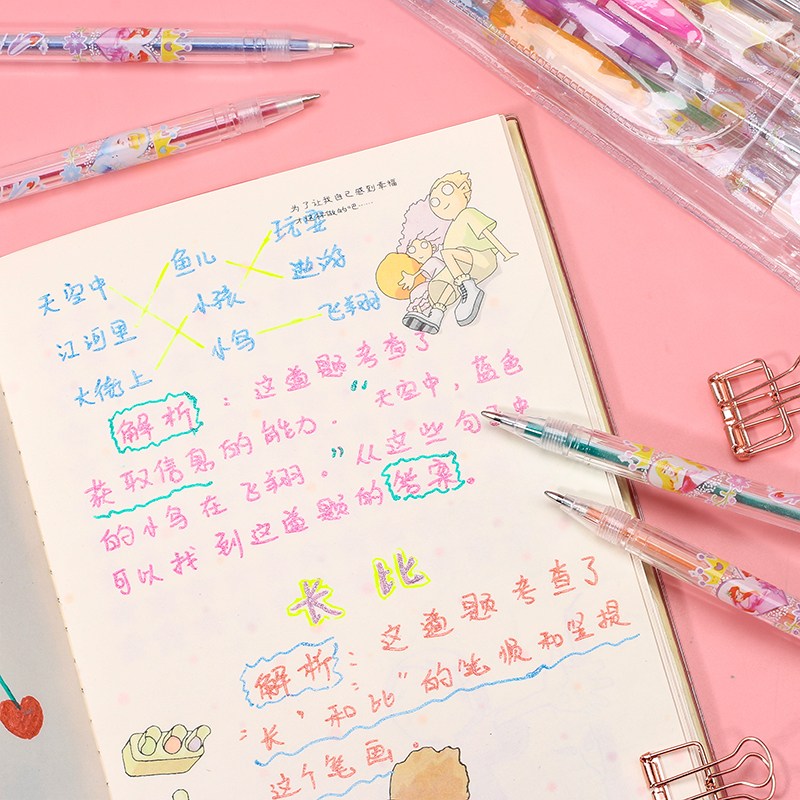 为了让我自己感到幸福
才这样做的吧……
天空中 鱼儿 玩耍
江河里 小孩 遨游
大街上 小鸟 飞翔
解析:这道题考查了
获取信息的能力。“天空中,蓝色
的小鸟在飞翔。”从这些句子中
可以找到这道题的答案。
长 比
解析:这道题考查了
“长”和“比”的笔顺和竖提
这个笔画。